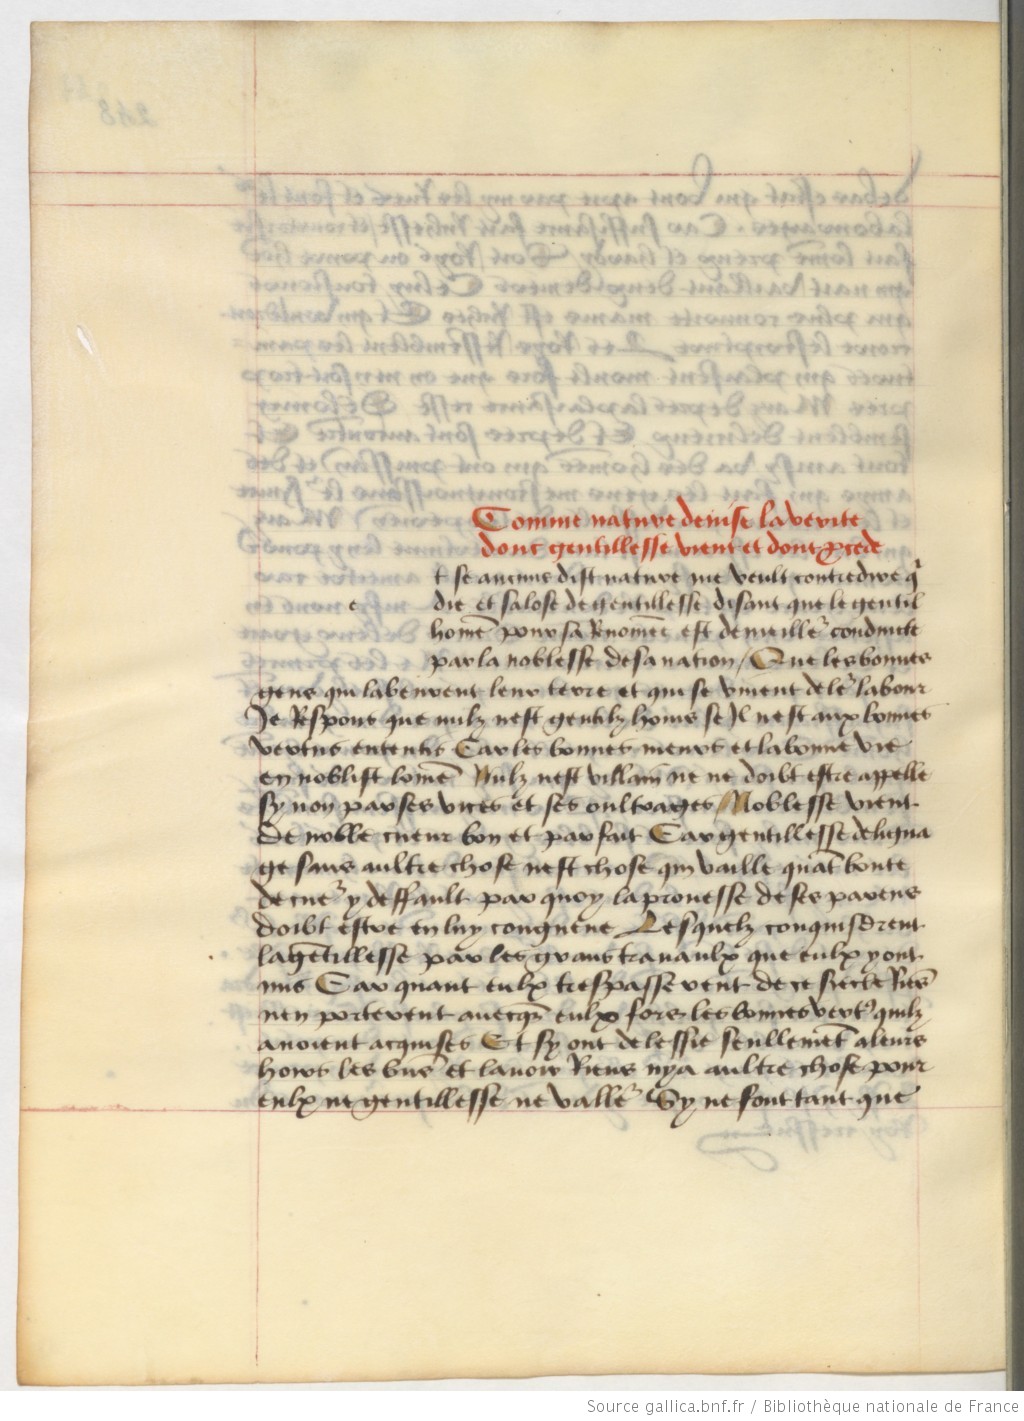 Comme nature deuise la verite
dont gentillesse vient et dont ꝓcede
t se aucuns dist nature me veult contredire q̄
e
die et salose de gentillesse disant que le gentil
home᷑ pour sa Renomee᷑ est de meille᷑ conduicte
par la noblesse de sa nation / Que les bonnes
gens qui labeurent leur terre et qui se viuent de le᷑ labour
Je Respons que nulz nest gentilz homs se Il nest aux bonnes
vertus ententis Car les bonnes meurs et la bonne vie
en noblist lome᷑ Nulz nest villain ne ne doibt estre appelle
sy non par ses vices et ses oultrages / Noblesse vient
de noble cueur bon et parfait Car gentillesse de ligna
ge sans aultre chose nest chose qui vaille quāt bonte
de cue᷑ y deffault par quoy la prouesse de ses parens
doibt estre en luy congneue Lesquelz conquisdrent
la ge᷑tillesse par les grans trauaulx que eulx y ont
mis Car quant eulx trespasserent de ce siecle Rie᷑s
nen porterent auecq̄s eulx fors les bonnes vert᷒ quilz
auoient acquises Et sy ont delessie seullemēt a leurs
hors les bie᷑s et lauoir Riens nya aultre chose pour
eulx ne gentillesse ne valle᷑ Sy ne font tant que
Source gallica.bnf.fr / Bibliothèque nationale de France